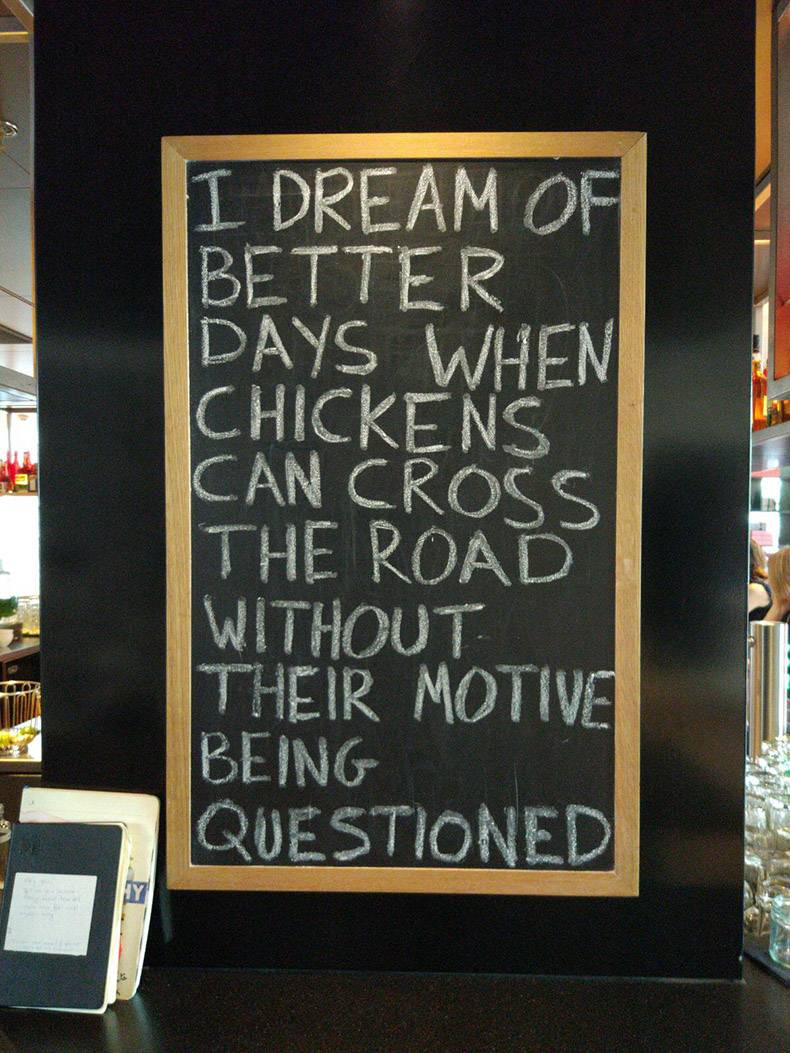 I DREAM OF
BETTER
DAYS WHEN
CHICKENS
CAN CROSS
THE ROAD
WITHOUT
THEIR MOTIVE
BEING
QUESTIONED
HY